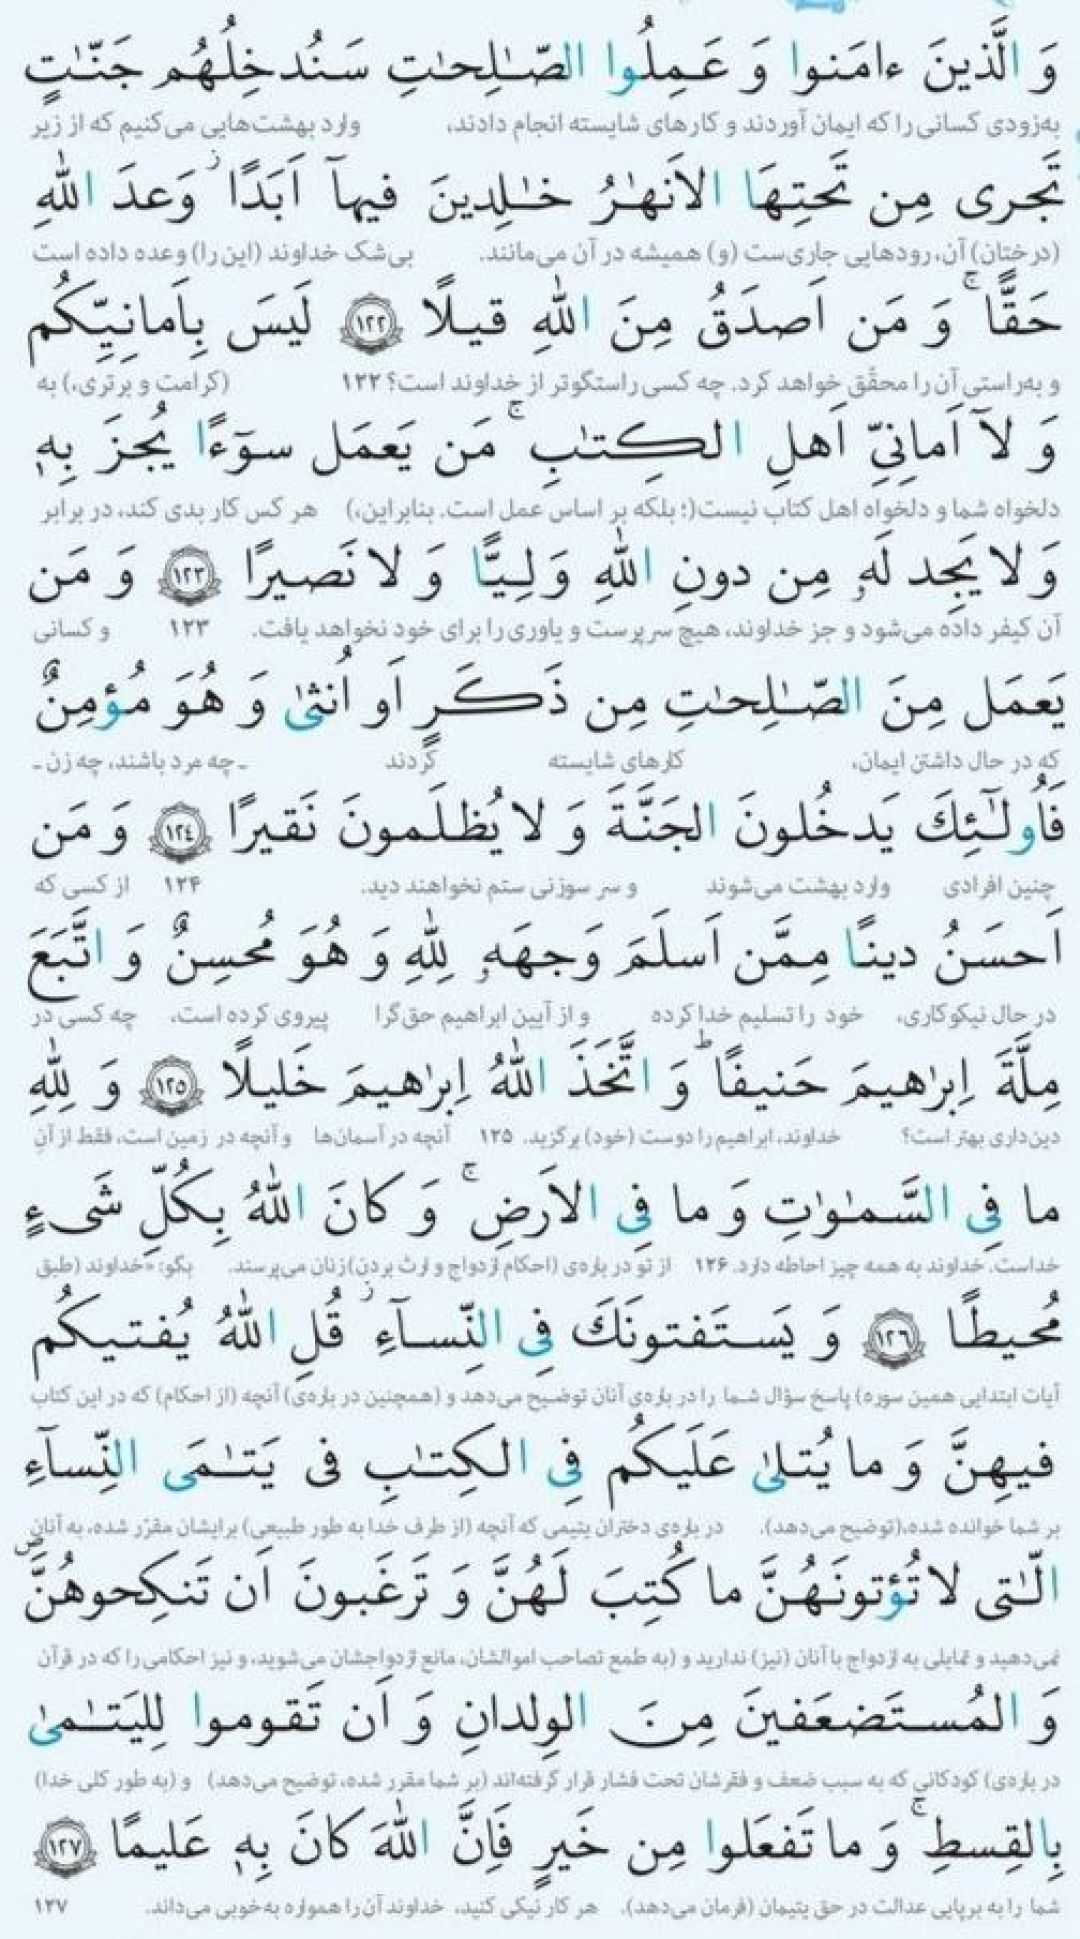 وَ الَّذینَ ءامَنوا وَ عَمِلُوا الصّـٰلِحـٰتِ سَنُدخِلُهُم جَنّـٰتٍ
به‌زودی کسانی را که ایمان آوردند و کارهای شایسته انجام دادند، وارد بهشت‌هایی می‌کنیم که از زیر
تَجری مِن تَحتِهَا الاَنهٰرُ خـٰلِدینَ فیهآ اَبَدًا ۖ وَعدَ اللهِ
(درختان) آن، رودهایی جاری‌ست (و) همیشه در آن می‌مانند. بی‌شک خداوند (این را) وعده داده است
حَقًّا ۚ وَ مَن اَصدَقُ مِنَ اللهِ قیلًا ﴿١٢٢﴾ لَیسَ بِاَمانِیِّکُم
و به‌راستی آن را محقَّق خواهد کرد. چه کسی راستگوتر از خداوند است؟ ۱۲۲ (کرامت و برتری،) به
وَ لآ اَمانِیِّ اَهلِ الکِتـٰبِ ۚ مَن یَعمَل سوٓءًا یُجزَ بِهٖ
دلخواه شما و دلخواه اهل کتاب نیست(؛ بلکه بر اساس عمل است. بنابراین،) هر کس کار بدی کند، در برابر
وَ لا یَجِد لَهٗ مِن دونِ اللهِ وَلِـیًّا وَ لا نَصیرًا ﴿١٢٣﴾ وَ مَن
آن کیفر داده می‌شود و جز خداوند، هیچ سرپرست و یاوری را برای خود نخواهد یافت. ۱۲۳ و کسانی
یَعمَل مِنَ الصّـٰلِحـٰتِ مِن ذَکَرٍ اَو اُنثیٰ وَ هُوَ مُؤمِنٌ
که در حال داشتن ایمان، کارهای شایسته کردند ـ چه مرد باشند، چه زن ـ
فَاُولـٰٓئِکَ یَدخُلونَ الجَنَّةَ وَ لا یُظلَمونَ نَقیرًا ﴿١٢٤﴾ وَ مَن
چنین افرادی وارد بهشت می‌شوند و سر سوزنی ستم نخواهند دید. ۱۲۴ از کسی که
اَحسَنُ دینًا مِمَّن اَسلَمَ وَجهَهٗ لِلّٰهِ وَ هُوَ مُحسِنٌ وَ اتَّبَعَ
در حال نیکوکاری، خود را تسلیم خدا کرده و از آیین ابراهیم حق‌گرا پیروی کرده است، چه کسی در
مِلَّةَ اِبرٰهیمَ حَنیفًا ؕ وَ اتَّخَذَ اللهُ اِبرٰهیمَ خَلیلًا ﴿١٢٥﴾ وَ لِلّٰهِ
دین‌داری بهتر است؟ خداوند، ابراهیم را دوست (خود) برگزید. ۱۲۵ آنچه در آسمان‌ها و آنچه در زمین است، فقط از آنِ
ما فِی السَّمـٰوٰتِ وَ ما فِی الاَرضِ ۚ وَ کانَ اللهُ بِکُلِّ شَیءٍ
خداست. خداوند به همه چیز احاطه دارد. ۱۲۶ از تو درباره‌ی (احکام ازدواج و ارث بردن) زنان می‌پرسند. بگو: «خداوند (طبق
مُحیطًا ﴿١٢٦﴾ وَ یَستَفتونَکَ فِی النِّسآءِ ۖ قُلِ اللهُ یُفتیکُم
آیات ابتدایی همین سوره) پاسخ سؤال شما را درباره‌ی آنان توضیح می‌دهد و (همچنین درباره‌ی) آنچه (از احکام) که در این کتاب
فیهِنَّ وَ ما یُتلیٰ عَلَیکُم فِی الکِتـٰبِ فی یَتـٰمَی النِّسآءِ
بر شما خوانده شده،(توضیح می‌دهد). درباره‌ی دختران یتیمی که آنچه (از طرف خدا به طور طبیعی) برایشان مقرّر شده، به آنان
الّـٰتی لا تُؤتونَهُنَّ ما کُتِبَ لَهُنَّ وَ تَرغَبونَ اَن تَنکِحوهُنَّ
نمی‌دهید و تمایلی به ازدواج با آنان (نیز) ندارید و (به طمع تصاحب اموالشان، مانع ازدواجشان می‌شوید، و نیز احکامی را که در قرآن
وَ المُستَضعَفینَ مِنَ الوِلدانِ وَ اَن تَقوموا لِلیَتـٰمیٰ
درباره‌ی) کودکانی که به سبب ضعف و فقرشان تحت فشار قرار گرفته‌اند (بر شما مقرر شده، توضیح می‌دهد) و (به طور کلی خدا)
بِالقِسطِ ۚ وَ ما تَفعَلوا مِن خَیرٍ فَاِنَّ اللهَ کانَ بِهٖ عَلیمًا ﴿١٢٧﴾
شما را به برپایی عدالت در حق یتیمان (فرمان می‌دهد). هر کار نیکی کنید، خداوند آن را همواره به‌خوبی می‌داند. ۱۲۷